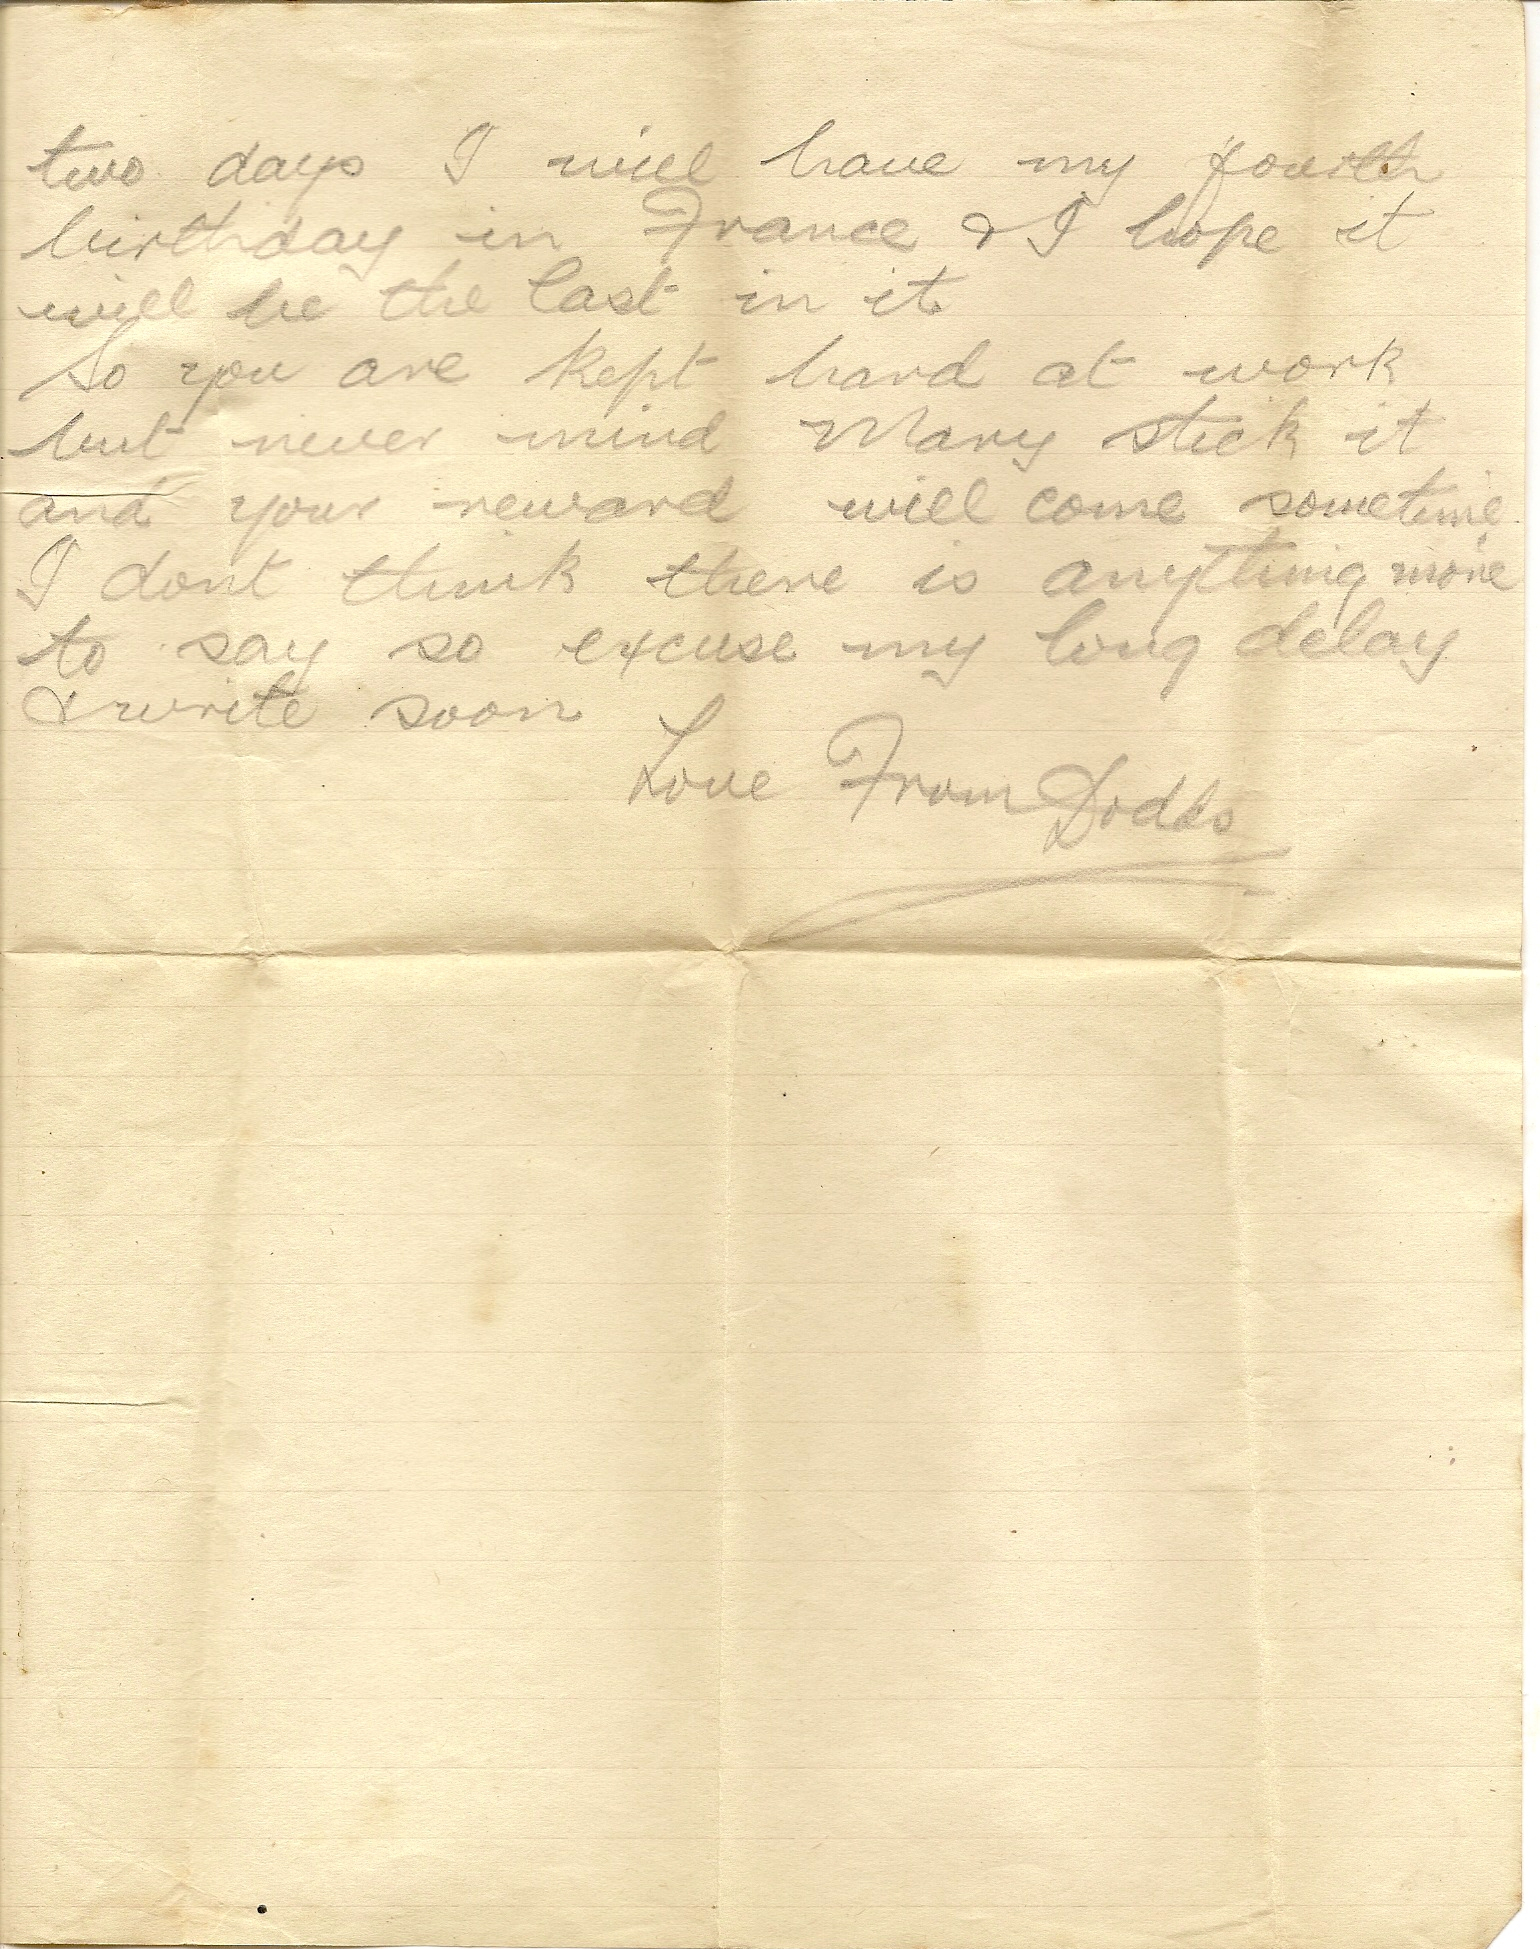 two days I will have my fourth
birthday in France & I hope it
will be the last in it
So you are kept hard at work
but never mind Mary stick it
and your reward will come sometime
I dont think there is anything more
to say so excuse my long delay
& write soon
Love From Dodds